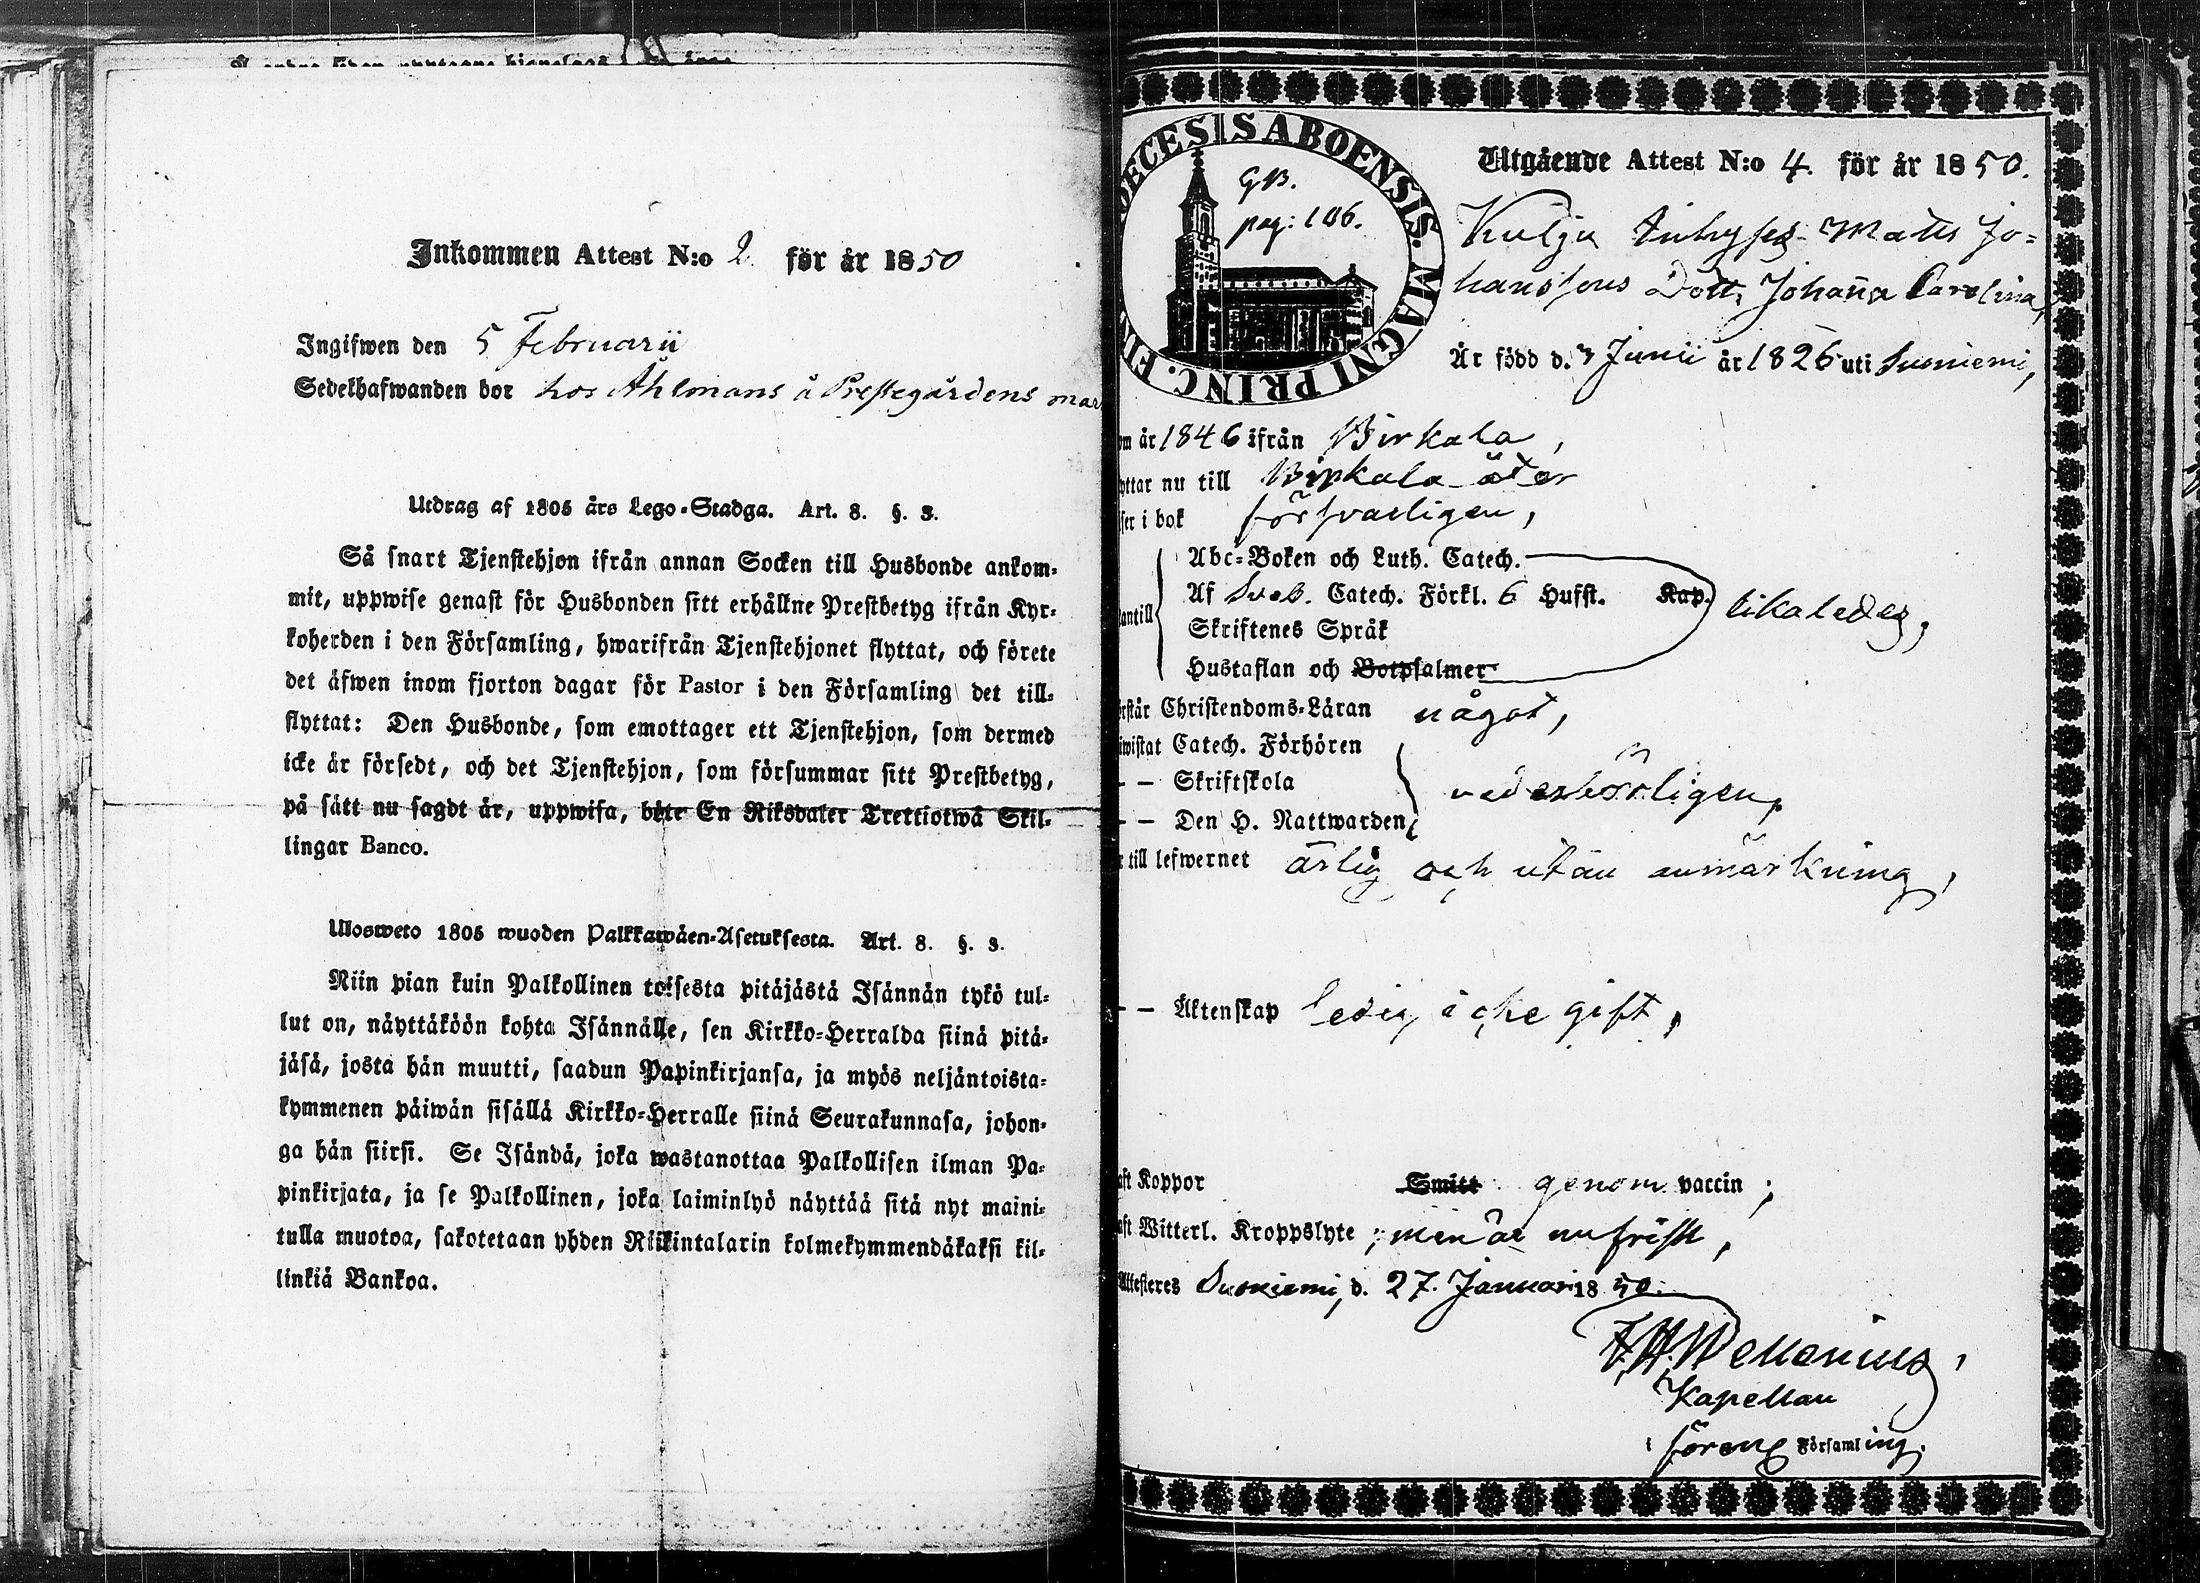 Inkommen Attest N:o 2 för år 1850
Ingifwen den 5 Februarii
Sedelhafwanden bor hos Åhlmans å Prestegårdens mar
Utdrag af 1805 års Lego-Stadga. Art. 8. §. 3.
Så snart Tjenstehjon ifrån annan Socken till Husbonde ankom-
mit, uppwise genast för Husbonden sitt erhållne Prestbetyg ifrån Kyr-
koherden i den Församling, hwarifrån Tjenstehjonet flyttat, och förete
det äfwen inom fjorton dagar för Pastor i den Församling det till-
flyttat: Den Husbonde, som emottager ett Tjenstehjon, som dermed
icke är försedt, och det Tjenstehjon, som försummar sitt Prestbetyg,
på sätt nu sagdt är, uppwisa, böte En Riksdaler Trettiotwå Skil-
lingar Banco.
Ulosweto 1805 wuoden Palkkawäen-Asetuksesta. Art. 8. §. 3.
Niin pian kuin Palkollinen toisesta pitäjästä Isännän tykö tul-
lut on, näyttäköön kohta Isännälle, sen Kirkko-Herralda siinä pitä-
jäsä, josta hän muutti, saadun Papinkirjansa, ja myös neljäntoista-
kymmenen päiwän sisällä Kirkko-Herralle siinä Seurakunnasa, johon-
ga hän siirsi. Se Isändä, joka wastanottaa Palkollisen ilman Pa-
pinkirjata, ja se Palkollinen, joka laiminlyö näyttää sitä nyt maini-
tulla muotoa, sakotetaan yhden Riikintalarin kolmekymmendäkaksi kil-
linkiä Bankoa.
DECESIS ABOENSIS. MAGNI PRINC. FIN
GB.
pag: 106.
Utgående Attest N:o 4. för år 1850.
Kulju Mats Jo-
hanssons Dottr Johanna Carolina,
Är född d. 3 Junii år 1826 uti Suoniemi,
om år 1846 ifrån Birkala,
yttar nu till Birkala åter
ser i bok försvarligen,
Abc-Boken och Luth. Catech.
antill Af Sveb. Catech. Förkl. 6 Hufst. Kap. likaledes,
Skriftenes Språk
Hustaflan och Botpsalmer
rstår Christendoms-Läran något,
iwistat Catech. Förhören
- - Skriftskola vederbörligen,
- - Den H. Nattwarden
r till lefwernet ärlig och utan anmärkning,
- - Äktenskap ledig icke gift,
aft Koppor Smitt genom vaccin;
aft Witterl. Kroppslyte; men är nu frisk,
Attesteres Suoniemi, d. 27. Januari 1850.
Kapellan
i förene Församling.